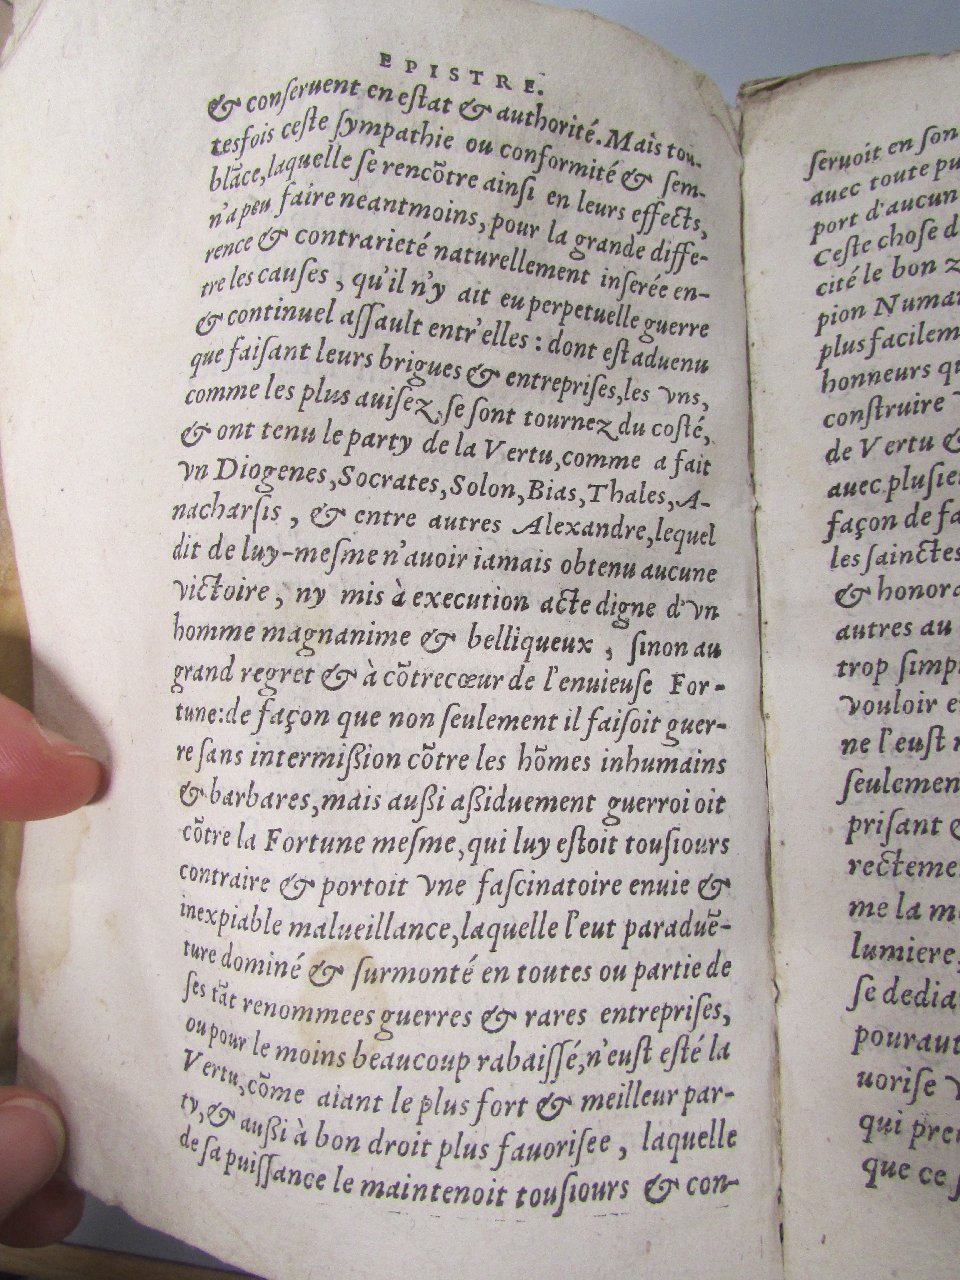 EPISTRE.
& conſeruent en eſtat & authorité. Mais tou-
tesfois ceſte ſympathie ou conformité & ſem-
blāce, laquelle ſe rencōtre ainſi en leurs effects,
n'a peu faire neantmoins, pour la grande diffe-
rence & contrarieté naturellement inſerée en-
tre les cauſes, qu'il n'y ait eu perpetuelle guerre
& continuel aſſault entr'elles : dont eſt aduenu
que faiſant leurs brigues & entrepriſes, les vns,
comme les plus auiſez, ſe ſont tournez du coſté,
& ont tenu le party de la Vertu, comme a fait
vn Diogenes, Socrates, Solon, Bias, Thales, A-
nacharſis, & entre autres Alexandre, lequel
dit de luy-meſme n'auoir iamais obtenu aucune
victoire, ny mis à execution acte digne d'vn
homme magnanime & belliqueux, ſinon au
grand regret & à cōtrecœur de l'enuieuſe For-
tune: de façon que non ſeulement il faiſoit guer-
re ſans intermiſſion cōtre les hōmes inhumains
& barbares, mais auſſi aſſiduement guerroioit
cōtre la Fortune meſme, qui luy eſtoit touſiours
contraire & portoit vne faſcinatoire enuie &
inexpiable malueillance, laquelle l'eut paraduē-
ture dominé & ſurmonté en toutes ou partie de
ſes tāt renommees guerres & rares entrepriſes,
ou pour le moins beaucoup rabaiſſé, n'euſt eſté la
Vertu, cōme aiant le plus fort & meilleur par-
ty, & auſſi à bon droit plus fauoriſee, laquelle
de ſa puiſſance le maintenoit touſiours & con-
ſeruoit en ſon
auec toute pu
port d'aucun
Ceſte choſe d
cité le bon z
pion Numa
plus facilem
honneurs qu
conſtruire
de Vertu &
auec pluſie
façon de fa
les ſainctes
& honora
autres au
trop ſimp
vouloir e
ne l'euſt
ſeulemen
priſant &
recteme
me la m
lumiere,
ſe dedia
pouraut
uoriſe v
qui pre
que ce ſ